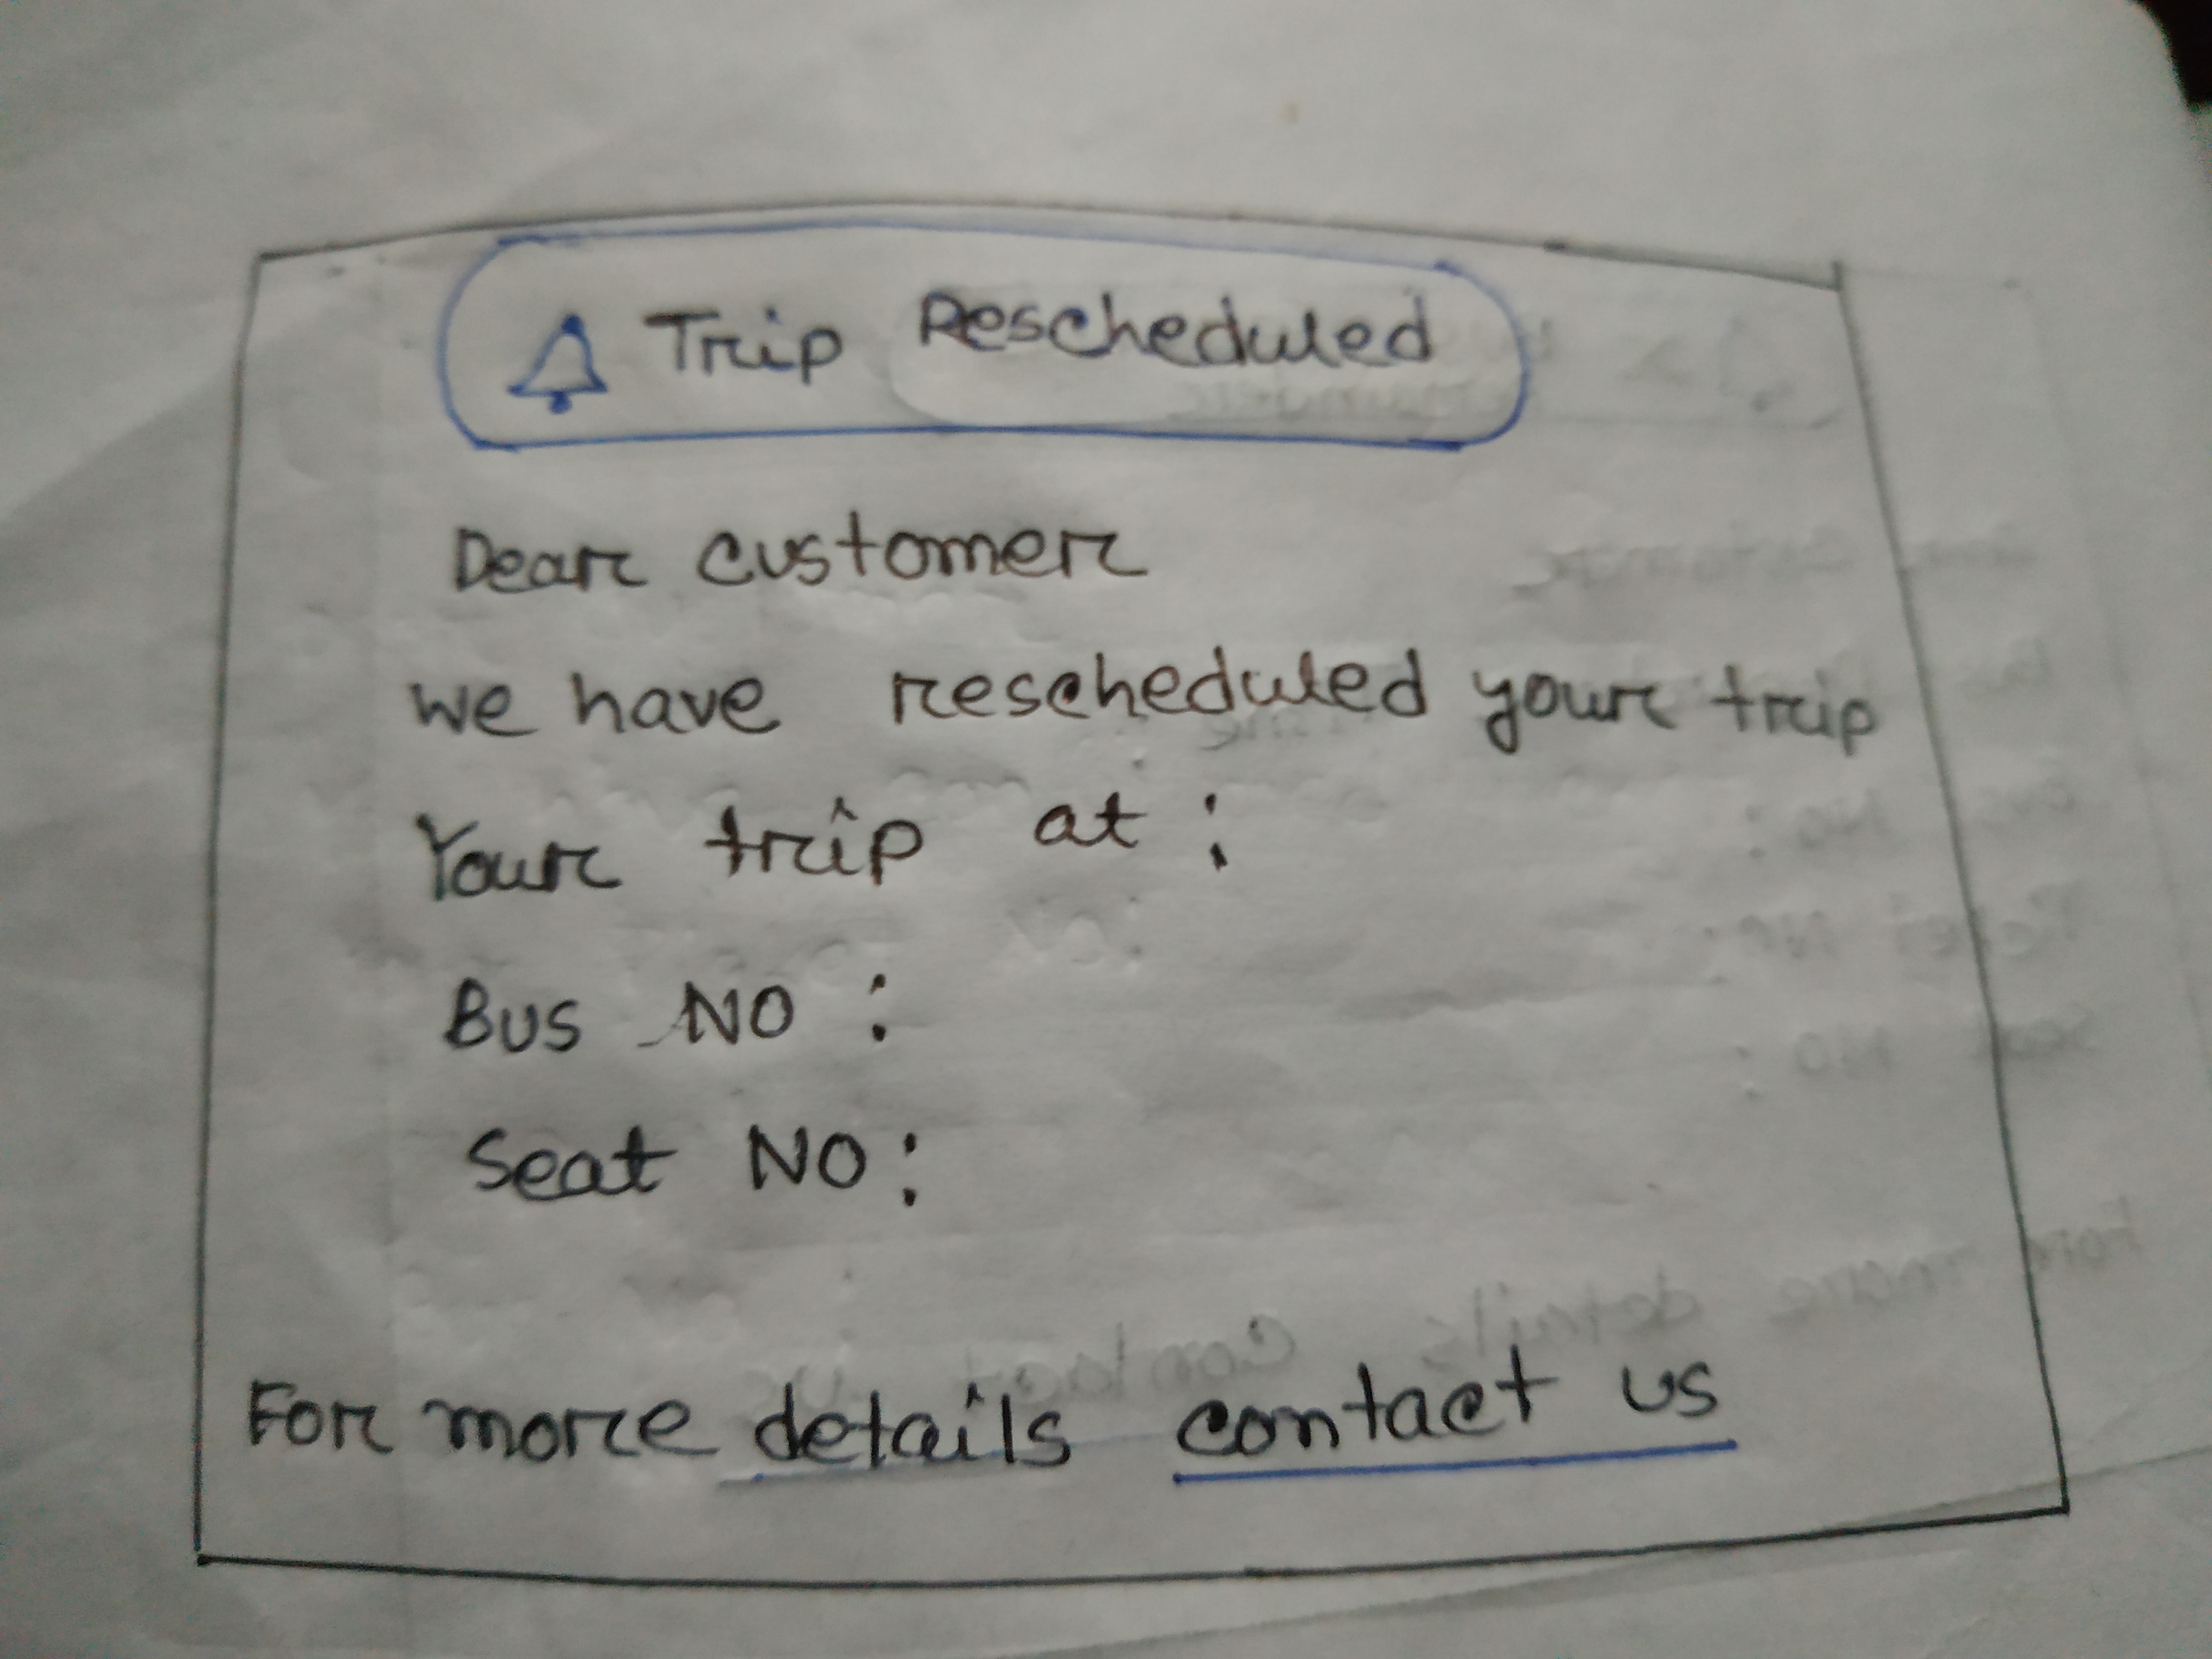 Trip Rescheduled
Dear customer
we have rescheduled your trip
Your trip at :
Bus NO :
Seat NO :
For more details contact us